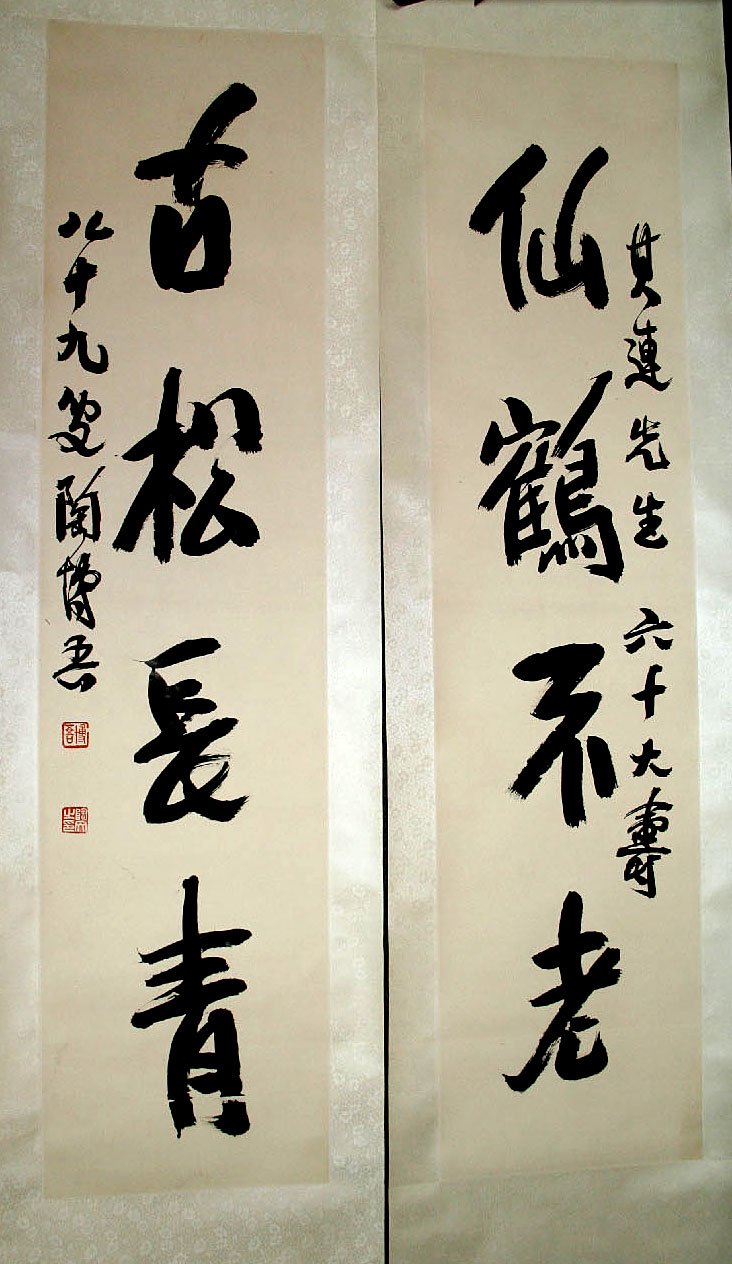 其連先生 六十大壽
仙鶴不老
古松長青
八十九叟陶博吾
博吾